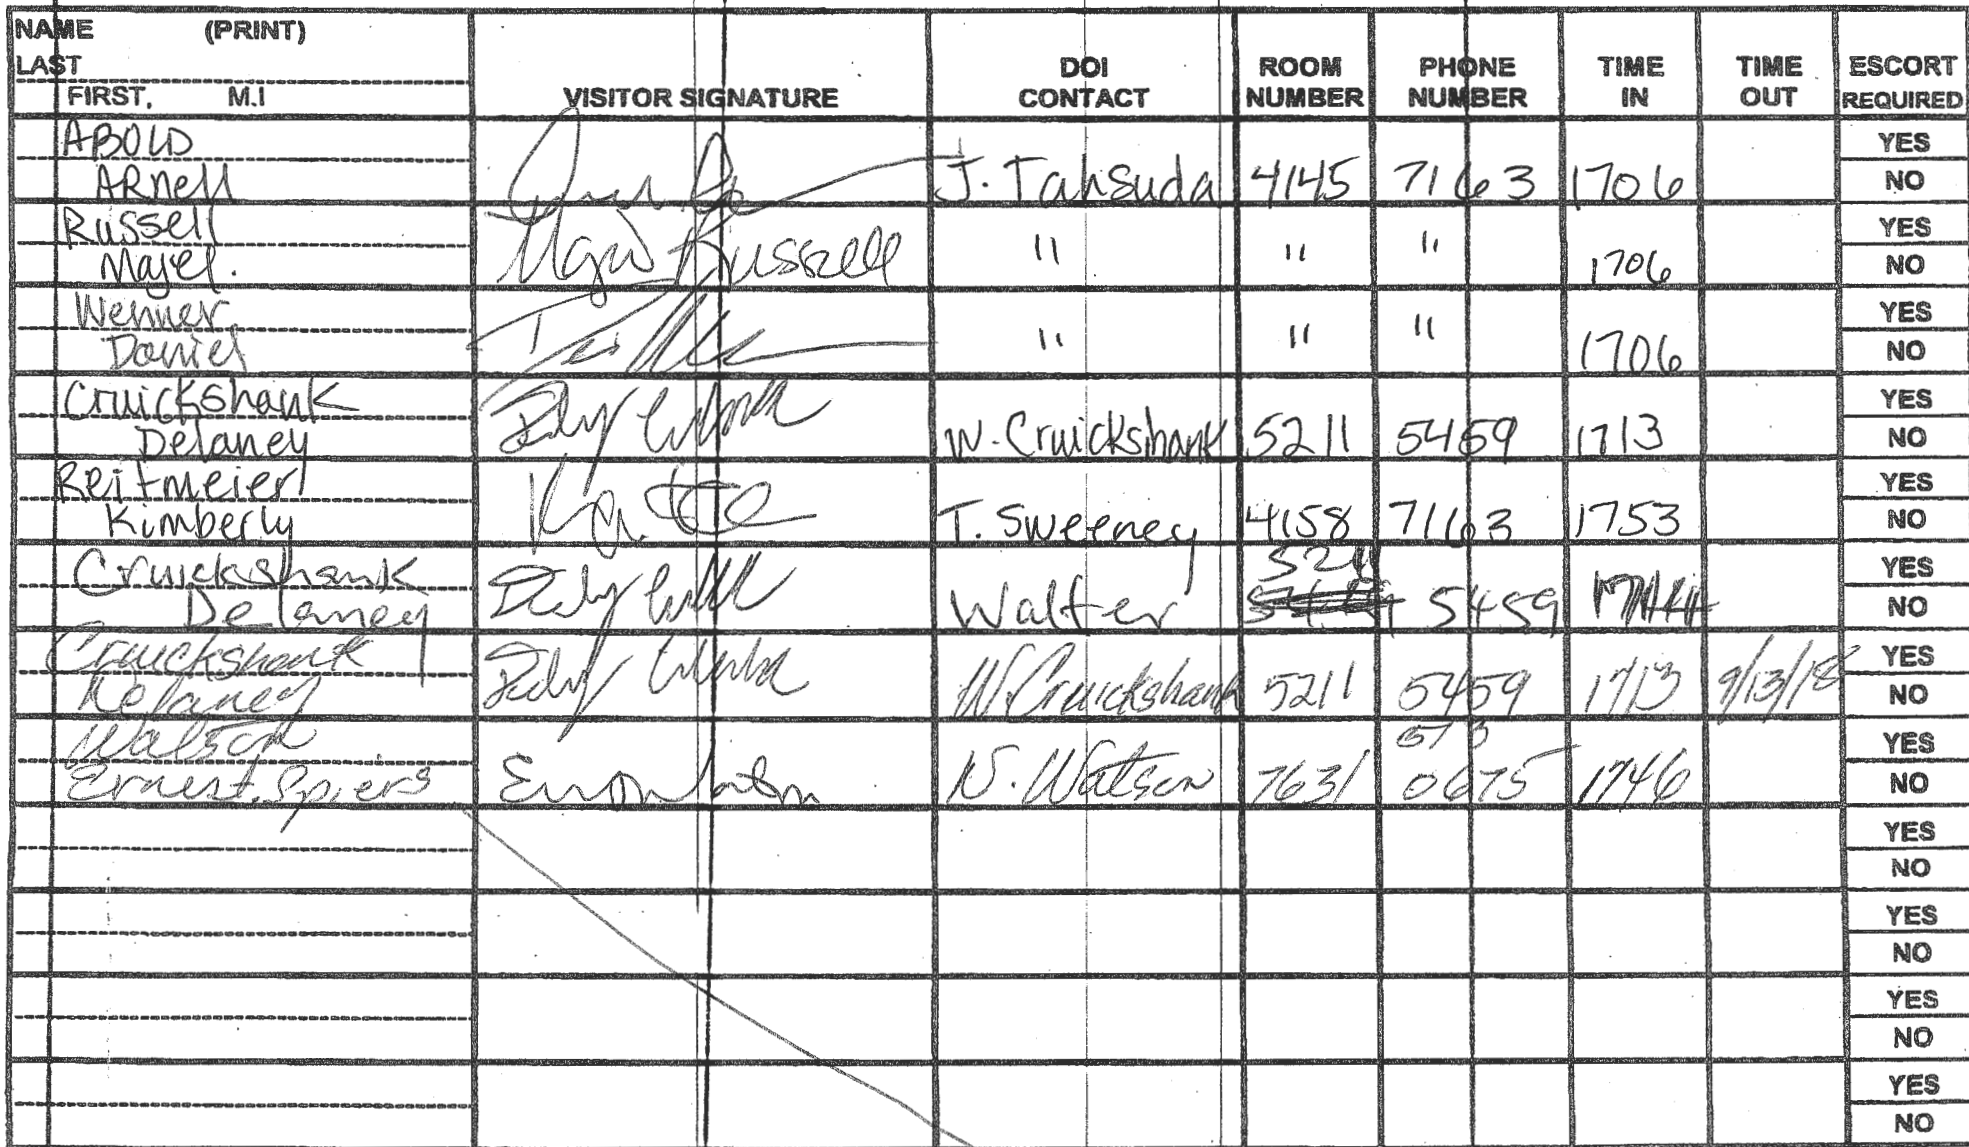 NAME (PRINT)
LAST
FIRST, M.I
VISITOR SIGNATURE
DOI CONTACT
ROOM NUMBER
PHONE NUMBER
TIME IN
TIME OUT
ESCORT REQUIRED
ABOLD
ARNell J. Tahsuda 4145 7163 1706 YES NO
Russell
Majel. Russell " " " 1706 YES NO
Wenner
Daniel " " " 1706 YES NO
Cruickshank
Delaney W. Cruickshank 5211 5459 1713 YES NO
Reitmeier
Kimberly T. Sweeney 4158 7163 1753 YES NO
Cruickshank
Delaney Walter 5211 5459 YES NO
Cruickshank
Delaney W. Cruickshank 5211 5459 1713 9/13/18 YES NO
Watson
Ernest, Spiers N. Watson 7631 0675 1746 YES NO
YES
NO
YES
NO
YES
NO
YES
NO